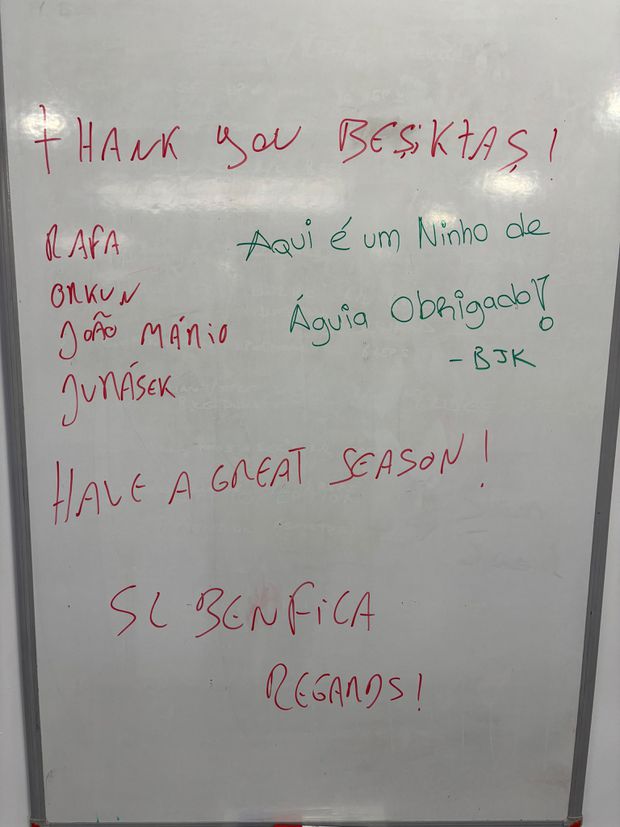 THANK YOU BEŞiKTAŞ!
RAFA
ORKUN
JOÃO MÁRiO
JURÁSEK
Aqui é um Ninho de
Águia Obrigado!
- BJK
HAVE A GREAT SEASON!
SL BENFiCA
REGARDS!